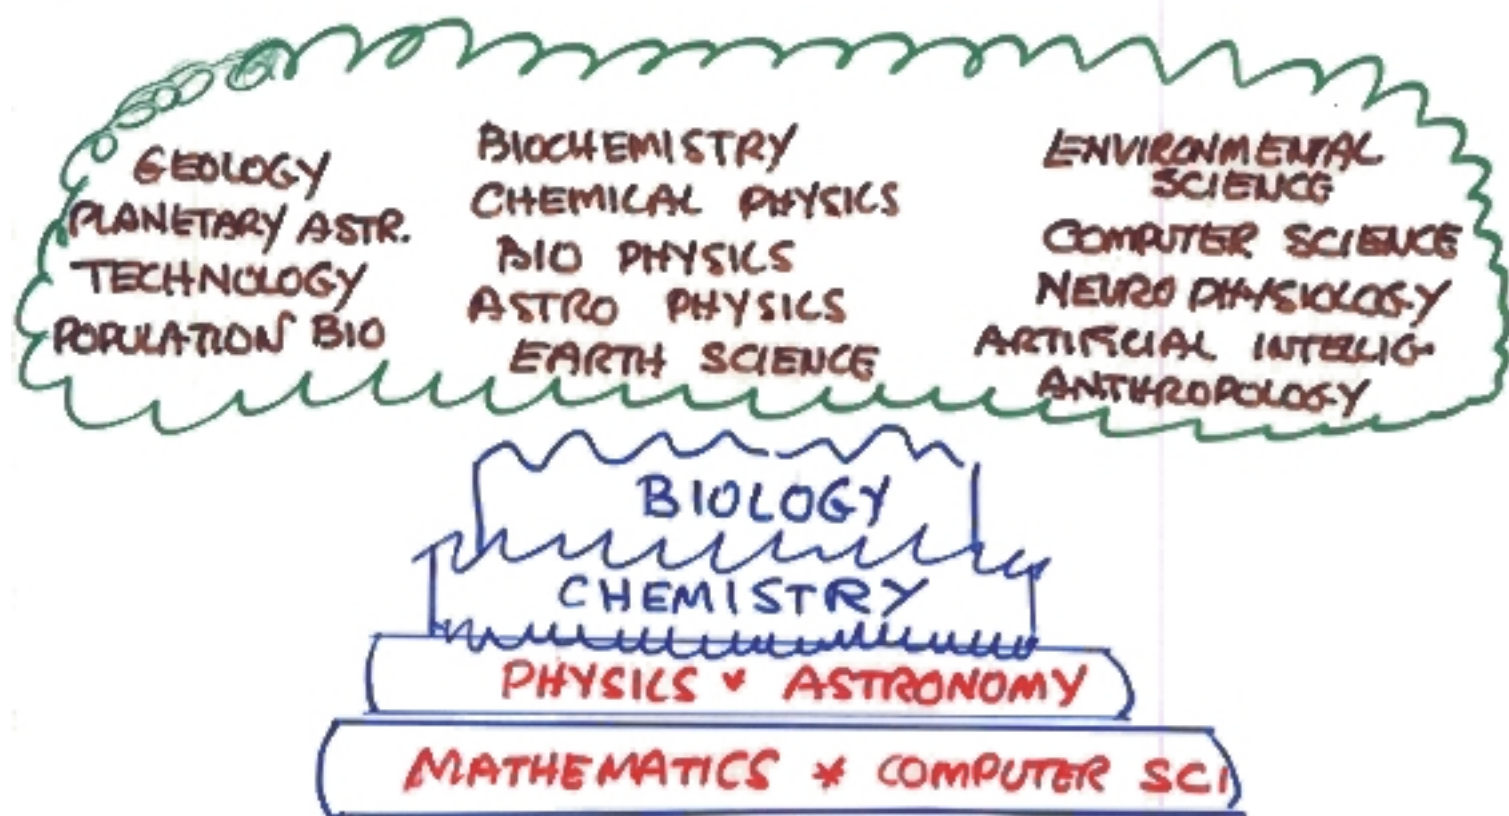 GEOLOGY
PLANETARY ASTR.
TECHNOLOGY
POPULATION BIO
BIOCHEMISTRY
CHEMICAL PHYSICS
BIO PHYSICS
ASTRO PHYSICS
EARTH SCIENCE
ENVIRONMENTAL
SCIENCE
COMPUTER SCIENCE
NEURO PHYSIOLOGY
ARTIFICIAL INTELLIG.
ANTHROPOLOGY
BIOLOGY
CHEMISTRY
PHYSICS * ASTRONOMY
MATHEMATICS * COMPUTER SCI